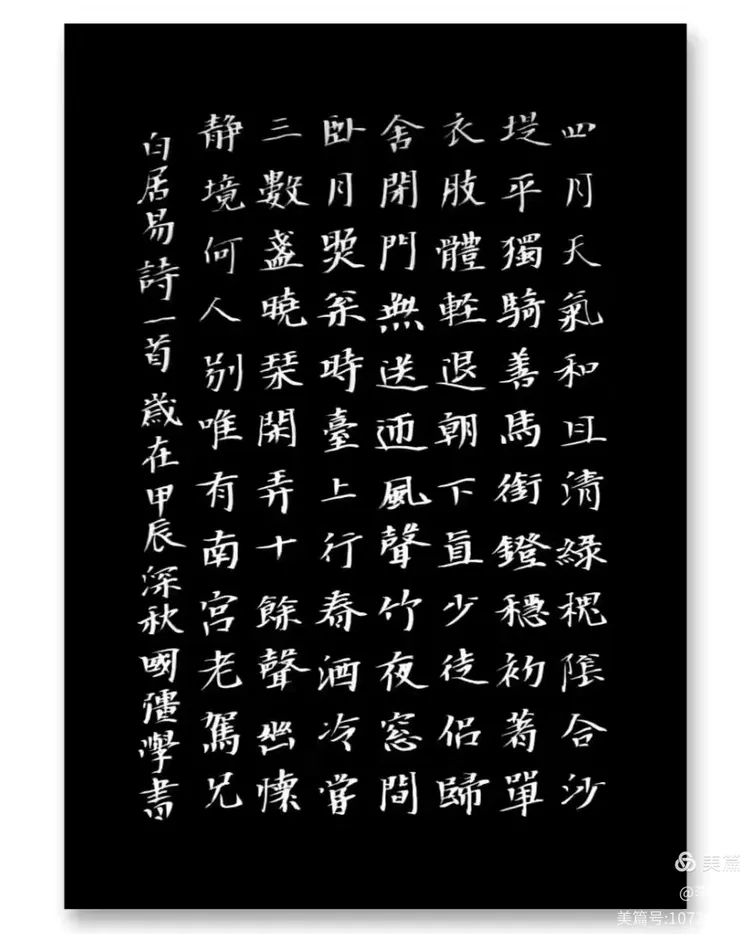 四月天氣和且清綠槐陰合沙
堤平獨騎善馬銜鐙穩初著單
衣肢體輕退朝下直少徒侶歸
舍閉門無送迎風聲竹夜窓間
卧月照枀時臺上行春酒冷嘗
三數盞曉琴閑弄十餘聲幽懷
静境何人别唯有南宮老駕兄
白居易詩一首 歲在甲辰深秋國彊學書
美篇
美篇号:107